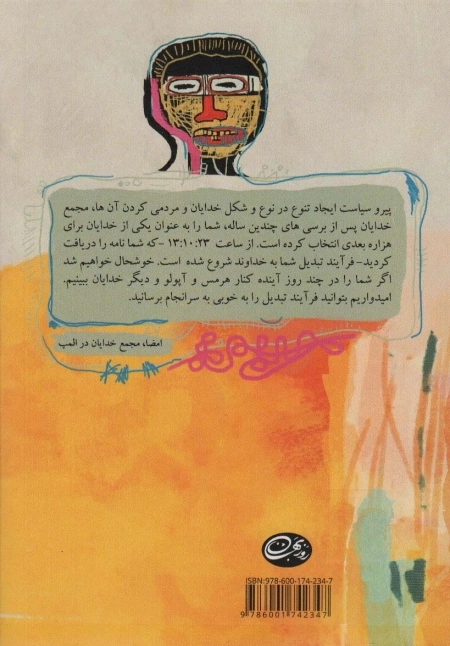 پیرو سیاست ایجاد تنوع در نوع و شکل خدایان و مردمی کردن آن ها، مجمع
خدایان پس از برسی های چندین ساله، شما را به عنوان یکی از خدایان برای
هزاره بعدی انتخاب کرده است. از ساعت ۱۳:۱۰:۲۳ -که شما نامه را دریافت
کردید- فرآیند تبدیل شما به خداوند شروع شده است. خوشحال خواهیم شد
اگر شما را در چند روز آینده کنار هرمس و آپولو و دیگر خدایان ببینیم.
امیدواریم بتوانید فرآیند تبدیل را به خوبی به سرانجام برسانید.
امضا، مجمع خدایان در المپ
روزبهان
ISBN: 978-600-174-234-7
9 786001 742347